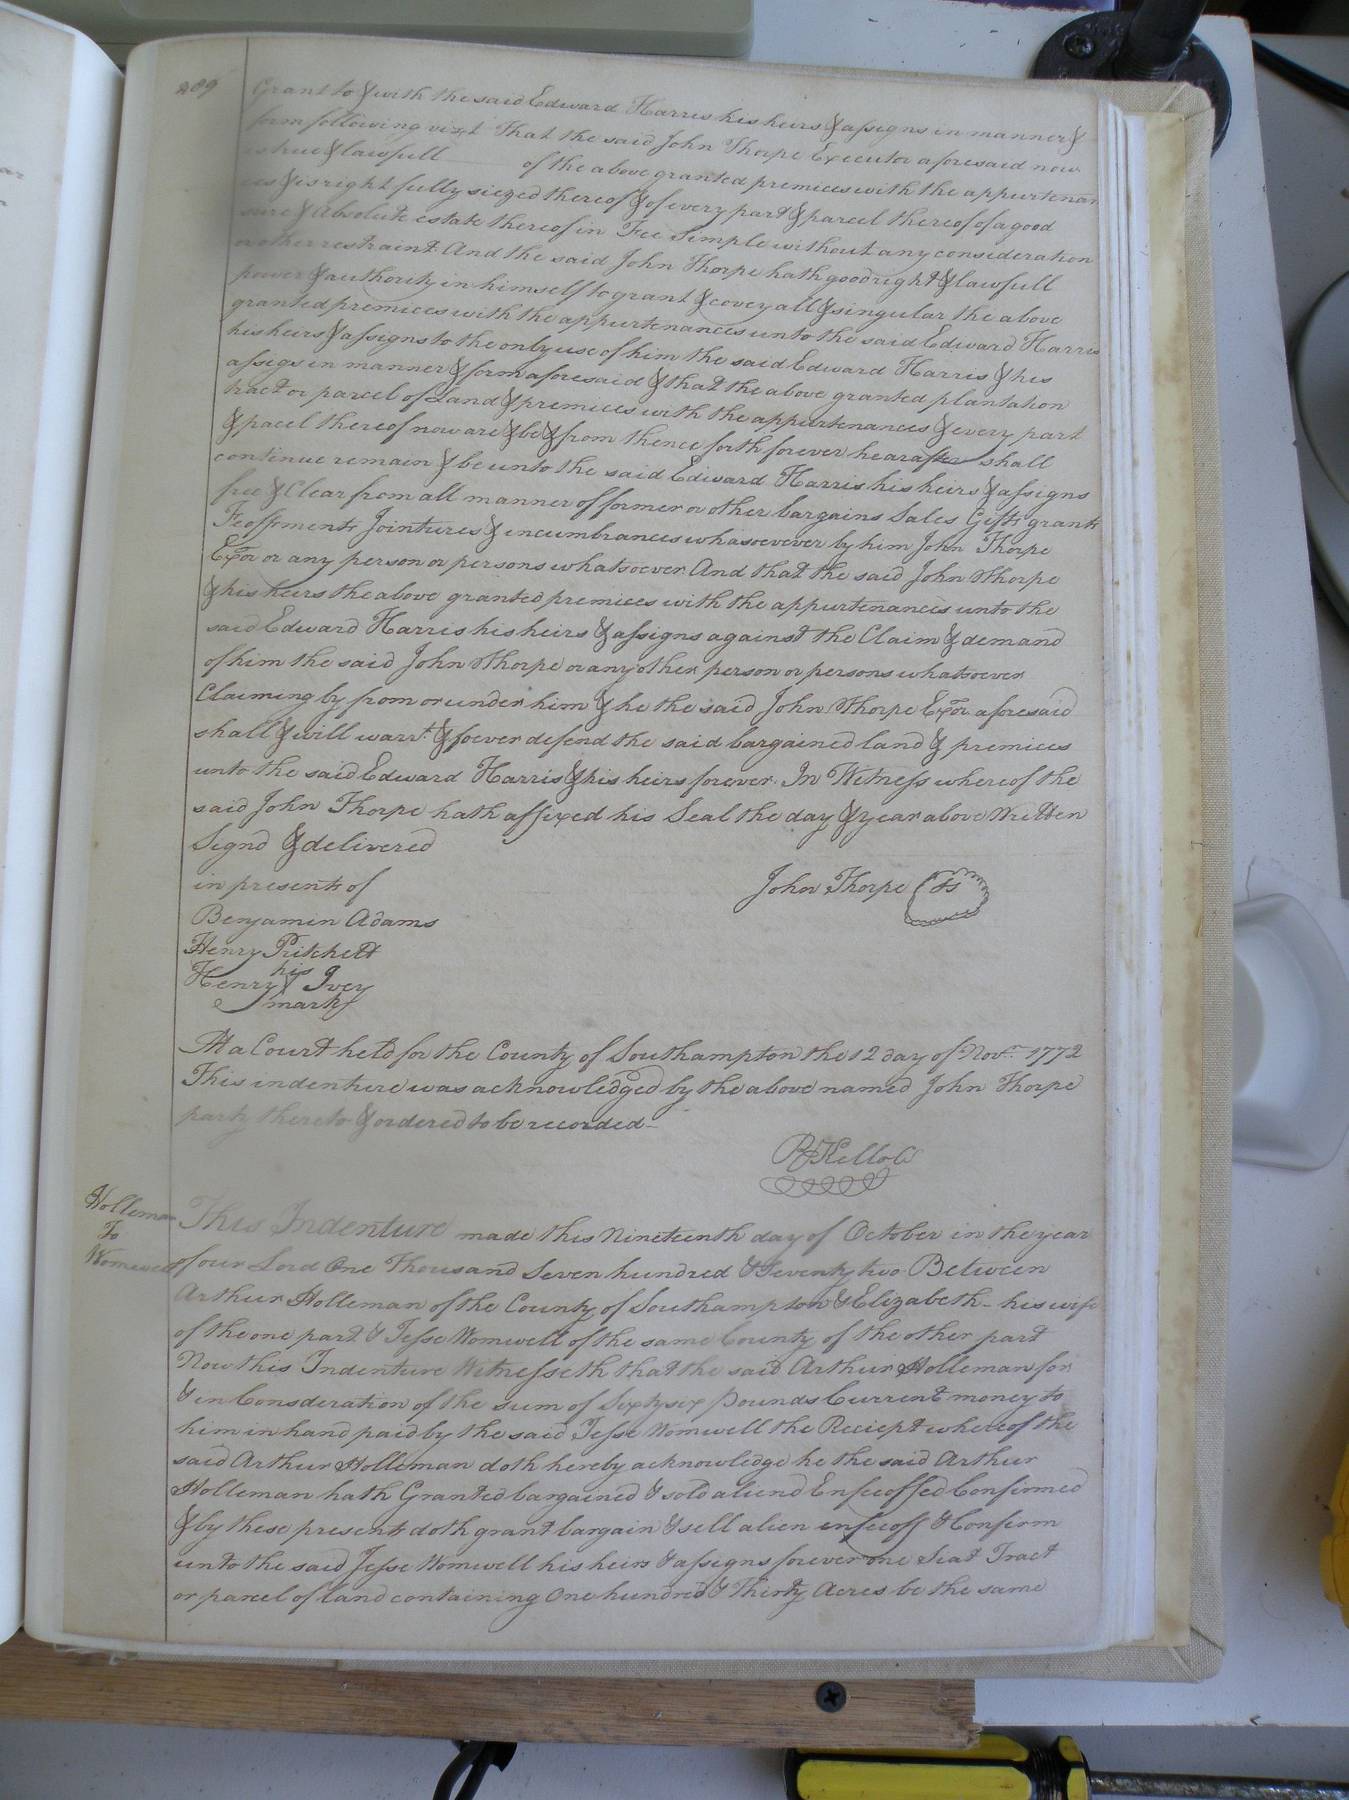 289
Grant to & with the said Edward Harris his heirs & assigns in manner &
form following vizt. That the said John Thorpe Executor aforesaid now
is true & lawfull of the above granted premices with the appurtenan
ces & is right fully siezed thereof & of every part & parcel thereof of a good
sure & Absolute estate thereof in Fee Simple without any consideration
or other restraint. And the said John Thorpe hath good right & lawfull
power & authority in himself to grant & covey all & singular the above
granted premices with the appurtenances unto the said Edward Harris
his heirs & assigns to the only use of him the said Edward Harris & his
assigs in manner & form aforesaid & that the above granted plantation
tract or parcel of Land & premices with the appurtenances & every part
& pacel thereof now are & be & from thence forth forever hearafter shall
continue remain & be unto the said Edward Harris his heirs & assigns
free & Clear from all manner of former or other bargains Sales Gifts grants
Feoffments Jointures & incumbrances whasoevever by him John Thorpe
Exor or any person or persons whatsoever And that the said John Thorpe
& his heirs the above granted premices with the appurtenances unto the
said Edward Harris his heirs & assigns against the Claim & demand
of him the said John Thorpe or any other person or persons whatsoever
Claiming by from or under him & he the said John Thorpe Exor. aforesaid
shall & will warrt. & foever defend the said bargained land & premices
unto the said Edward Harris & his heirs forever. In Witness whereof the
said John Thorpe hath affixed his Seal the day & year above Written
Signd & delivered
in presents of
John Thorpe (Ls)
Benjamin Adams
Henry Pritchett
his
Henry Ivey
mark
At a Court held for the County of Southampton the 12 day of Novr. 1772
This indenture was acknowledged by the above named John Thorpe
party thereto & ordered to be recorded-
R Kello C
Holleman
To
Womwell
This Indenture made this Nineteenth day of October in the year
of our Lord One Thousand Seven hundred & Seventy two Between
Arthur Holleman of the County of Southampton & Elizabeth - his wife
of the one part & Jesse Womwell of the same County of the other part
Now this Indenture Witnesseth that the said Arthur Holleman for
& in Consderation of the sum of Sixty six Pounds Current money to
him in hand paid by the said Jesse Womwell the Reciept whereof the
said Arthur Holleman doth hereby acknowledge he the said Arthur
Holleman hath Granted bargained & sold aliend Enfeoffed Confirmed
& by these presents doth grant bargain & sell alien enfeoff & Confirm
unto the said Jesse Womwell his heirs & assigns forever one Seat Tract
or parcel of land containing One hundred & Thirty Acres be the same